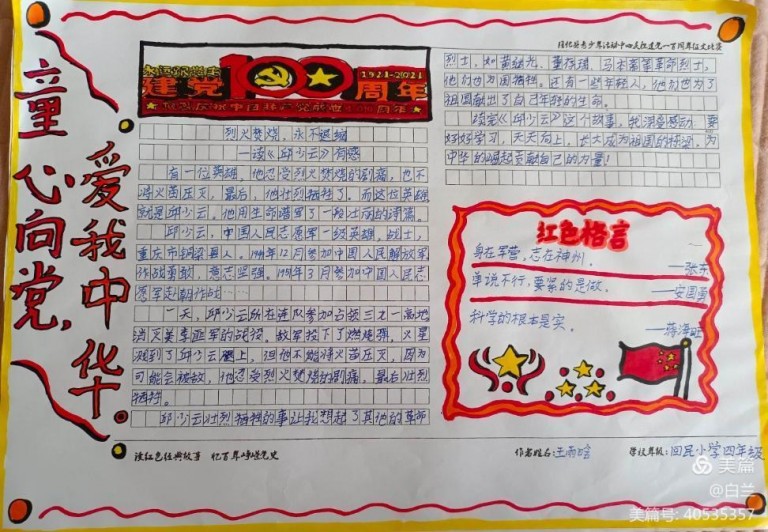 童心向党,
爱我中华
永远跟党走
建党100周年
1921-2021
烈火焚烧,永不退缩
——读《邱少云》有感
有一位英雄,他忍受烈火焚烧的剧痛,也不
将火苗压灭,最后,他壮烈牺牲了。而这位英雄
就是邱少云。他用生命谱写了一段壮丽的诗篇。
邱少云,中国人民志愿军一级英雄,战士,
重庆市铜梁县人。1949年12月参加中国人民解放军
作战勇敢,意志坚强。1951年3月参加中国人民志
愿军赴朝作战……
一天,邱少云所在连队参加占领三九一高地
消灭美李亚军的战役。敌军投下了燃烧弹,火星
溅到了邱少云腿上,但他不能将火苗压灭,因为
可能会被敌,他忍受烈火焚烧的剧痛,最后壮烈
牺牲。
邱少云壮烈牺牲的事让我想起了其他的革命
烈士,如黄继光、董存瑞、马本斋等革命烈士,
他们也为国牺牲。还有一些年轻人,他们也为了
祖国献出了自己年轻的生命。
读完《邱少云》这个故事,我深受感动,要
好好学习,天天向上,长大成为祖国的栋梁,为
中华的崛起贡献自己的力量!
红色格言
身在军营,志在神州。
——张东
单说不行,要紧的是做。
——安国勇
科学的根本是实。
——蒋泽旺
读红色经典故事 忆百年峥嵘党史
作者姓名:王雨晗
学校年级:回民小学四年级
美篇
@白兰
美篇号: 40535357